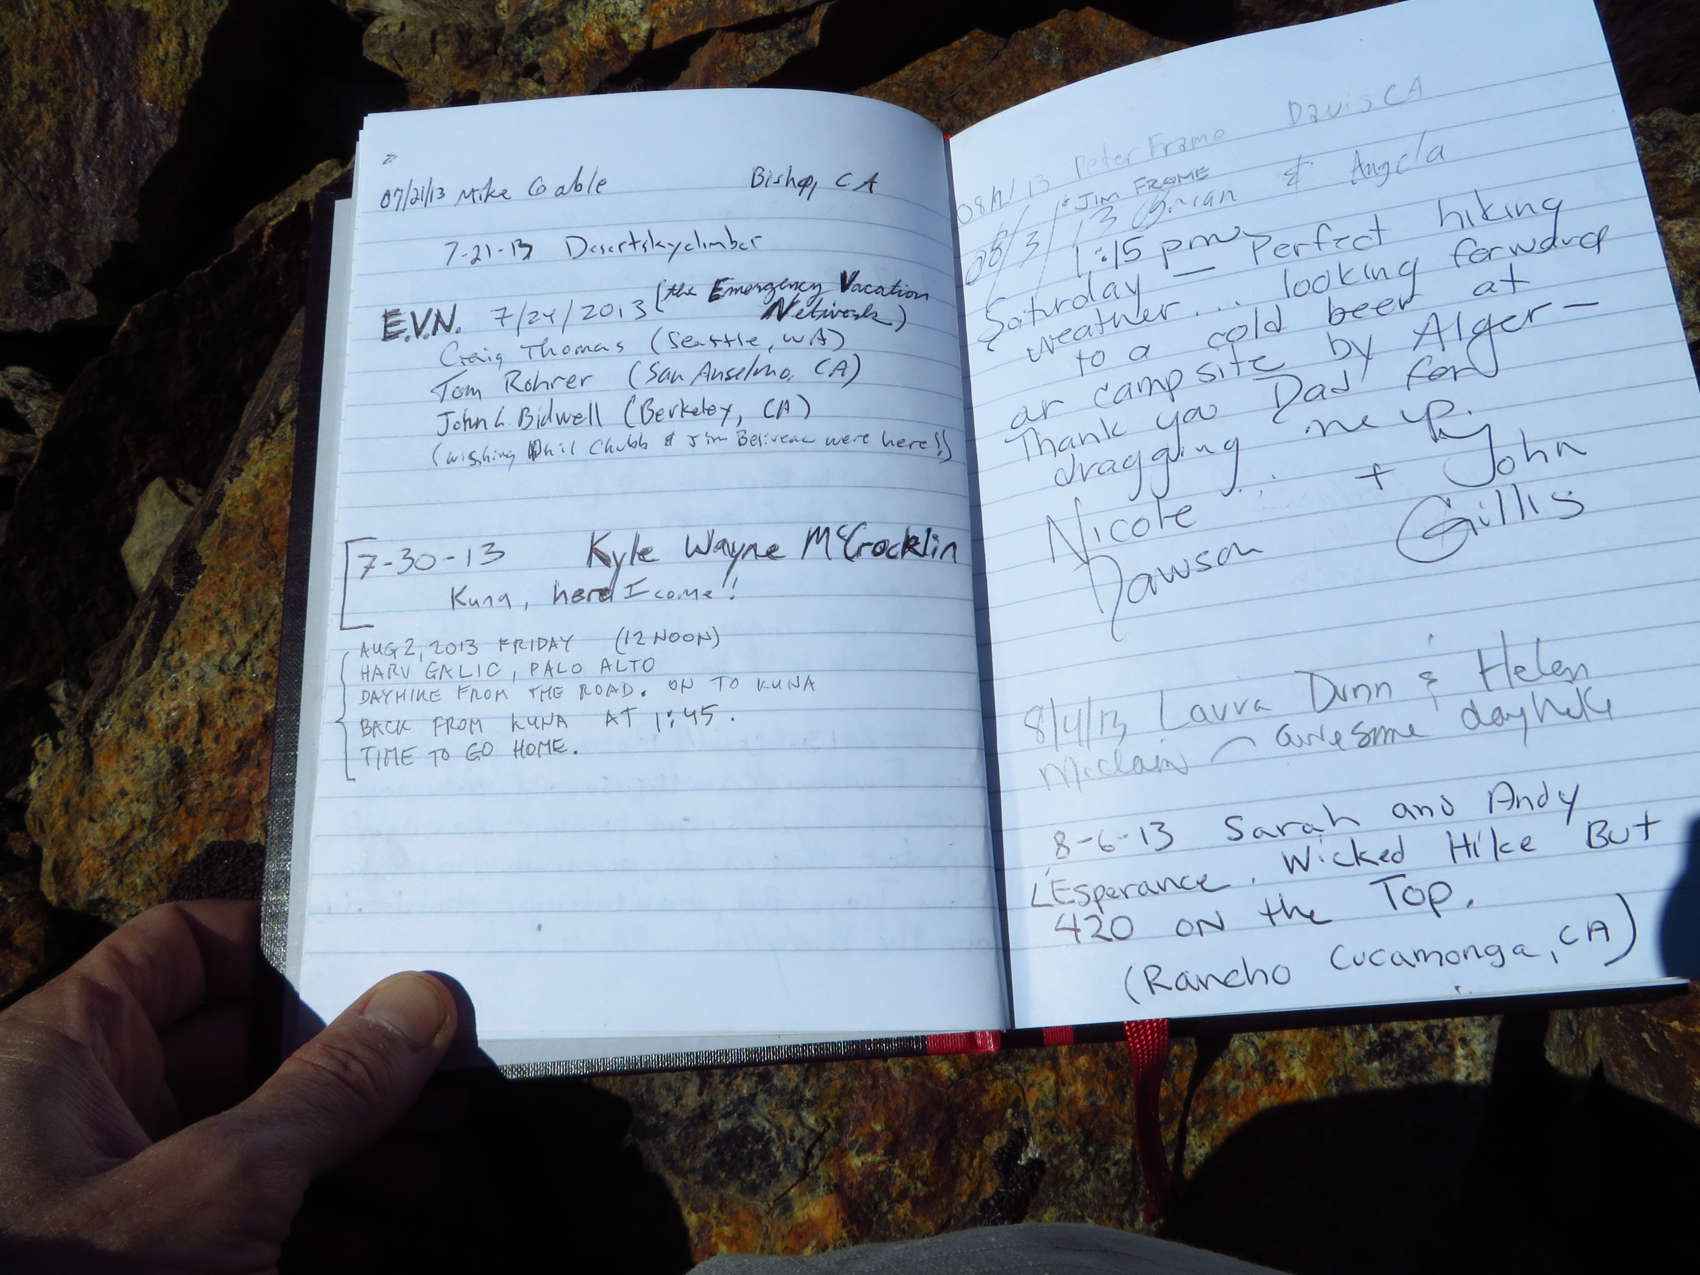 07/21/13 Mike Bishop, CA
7-21-13 Desertskyclimber
E.V.N. 7/24/2013 (the Emergency Vacation
Network)
Craig Thomas (Seattle, WA)
Tom Rohrer (San Anselmo, CA)
John L. Bidwell (Berkeley, CA)
(wishing Phil Chubb & Jim Beliveau were here!!)
7-30-13 Kyle Wayne McCrocklin
Kuna, here I come!!
AUG 2, 2013 FRIDAY (12 NOON)
HARV GALIC, PALO ALTO
DAYHIKE FROM THE ROAD. ON TO KUNA
BACK FROM KUNA AT 1:45.
TIME TO GO HOME.
13 Peter Frame Davis CA
& JIM FRAME
08/3/13 Brian & Angela
1:15 pm
Saturday — Perfect hiking
weather... looking forward
to a cold beer at
our campsite by Alger —
Thank you Dad for
dragging me up.
Nicole ... + John
Dawson Gillis
8/4/13 Laura Dunn & Helen
McClain — awesome dayhike
8-6-13 Sarah and Andy
L'Esperance. Wicked Hike But
420 on the Top.
(Rancho Cucamonga, CA)